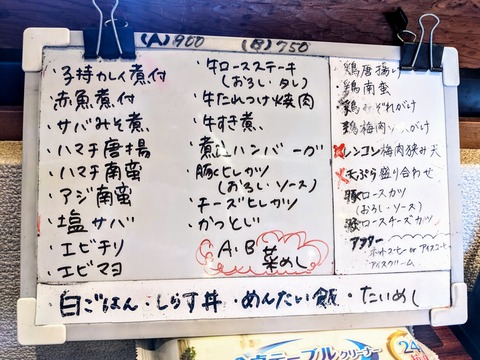 (A) 900 (B) 750
・子持カレイ煮付
・赤魚煮付
・サバみそ煮
・ハマチ唐揚
・ハマチ南蛮
・アジ南蛮
・塩サバ
・エビチリ
・エビマヨ
・牛ロースステーキ
(おろし・タレ)
・牛たれつけ焼肉
・牛すき煮
・煮込ハンバーグ
・豚ヒレカツ
(おろし・ソース)
・チーズヒレカツ
・かつとじ
A・B
菜めし
・鶏唐揚げ
・鶏南蛮
・鶏みぞれがけ
・鶏梅肉ソースがけ
レンコン梅肉挟み天
天ぷら盛り合わせ
豚ロースカツ
(おろし・ソース)
豚ロースチーズカツ
・アフター
・ホットコーヒー or アイスコーヒー
・アイスクリーム
・白ごはん・しらす丼・めんたい飯・たいめし
テーブル
クリーナー
24